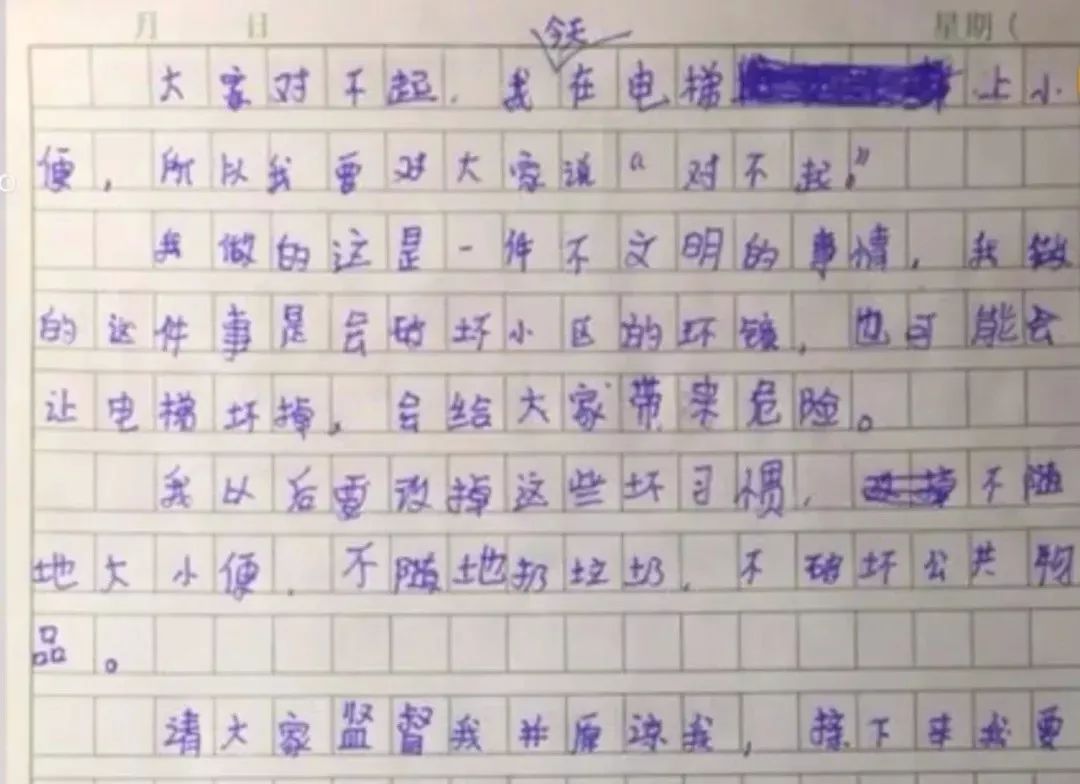 月 日 星期(
今天
大家对不起，我在电梯上小
便，所以我要对大家说“对不起”
我做的这是一件不文明的事情，我做
的这件事是会破坏小区的环镜，也可能会
让电梯坏掉，会给大家带来危险。
我以后要改掉这些坏习惯，不随
地大小便，不随地扔垃圾，不破坏公共物
品。
请大家监督我并原谅我，接下来我要